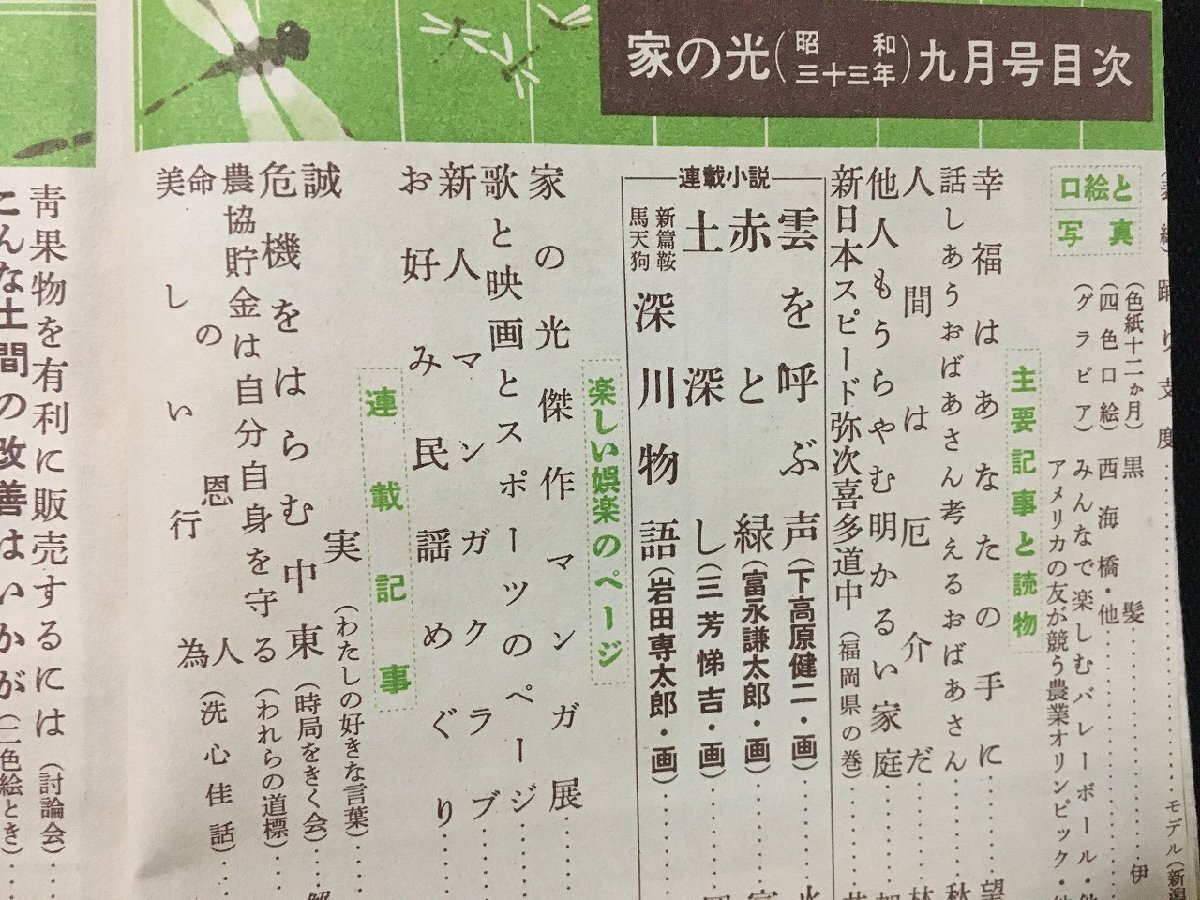 家の光(昭和三十三年)九月号目次
口絵と写真
踊り支度
モデル(新潟
(色紙十二ヵ月)黒髪
伊
(四色口絵)西海橋・他
(グラビア)みんなで楽しむバレーボール・他
アメリカの友が競う農業オリンピック・他
主要記事と読物
幸福はあなたの手に
望
話しあうおばあさん考えるおばあさん
秋
人間は厄介だ
林
他人もうらやむ明かるい家庭
加
新日本スピード弥次喜多道中(福岡県の巻)
連載小説
雲を呼ぶ声(下高原健二・画)
赤と緑(富永謙太郎・画)
土深し(三芳悌吉・画)
新篇鞍馬天狗 深川物語(岩田専太郎・画)
楽しい娯楽のページ
家の光傑作マンガ展
歌と映画とスポーツのページ
新人マンガクラブ
お好み民謡めぐり
連載記事
誠実(わたしの好きな言葉)
危機をはらむ中東(時局をきく会)
農協貯金は自分自身を守る(われらの道標)
命の恩人
美しい行為(洗心佳話)
青果物を有利に販売するには(討論会)
こんな土間の改善はいかが(二色絵とき)